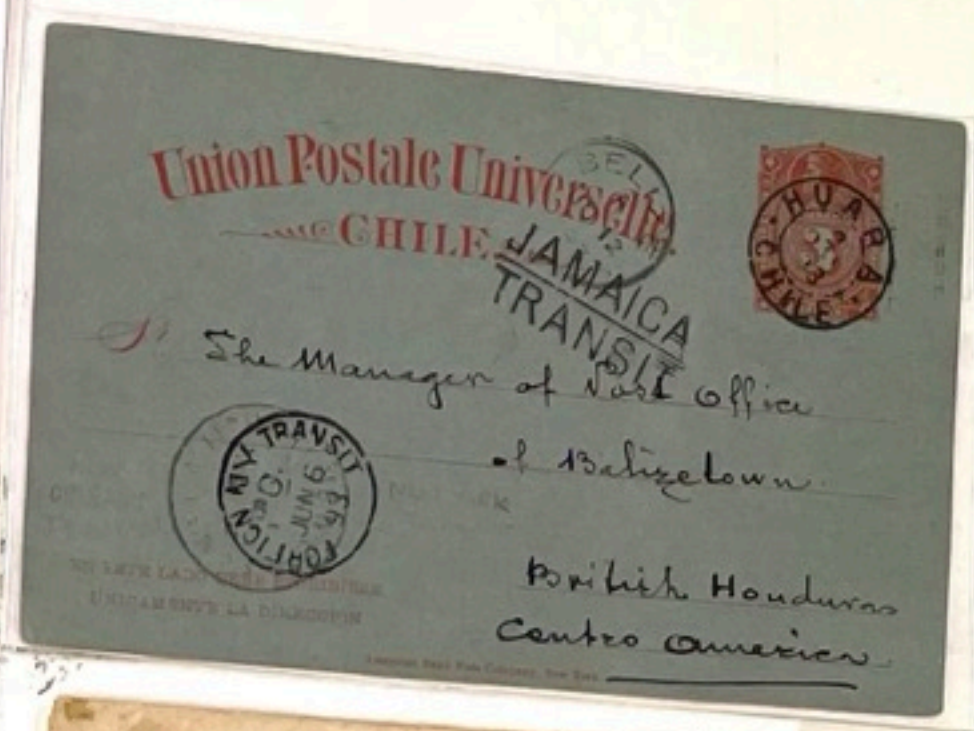 Union Postale Universelle
CHILE
BELI
12
JAMAICA
TRANSIT
HUARA
CHILE
The Manager of Post Office
of Belizetown
British Honduras
Centro America
TRANSIT
FOREIGN N.Y.
JUN 6
EN ESTE LADO DEBE ESCRIBIRSE
UNICAMENTE LA DIRECCION
American Bank Note Company, New York